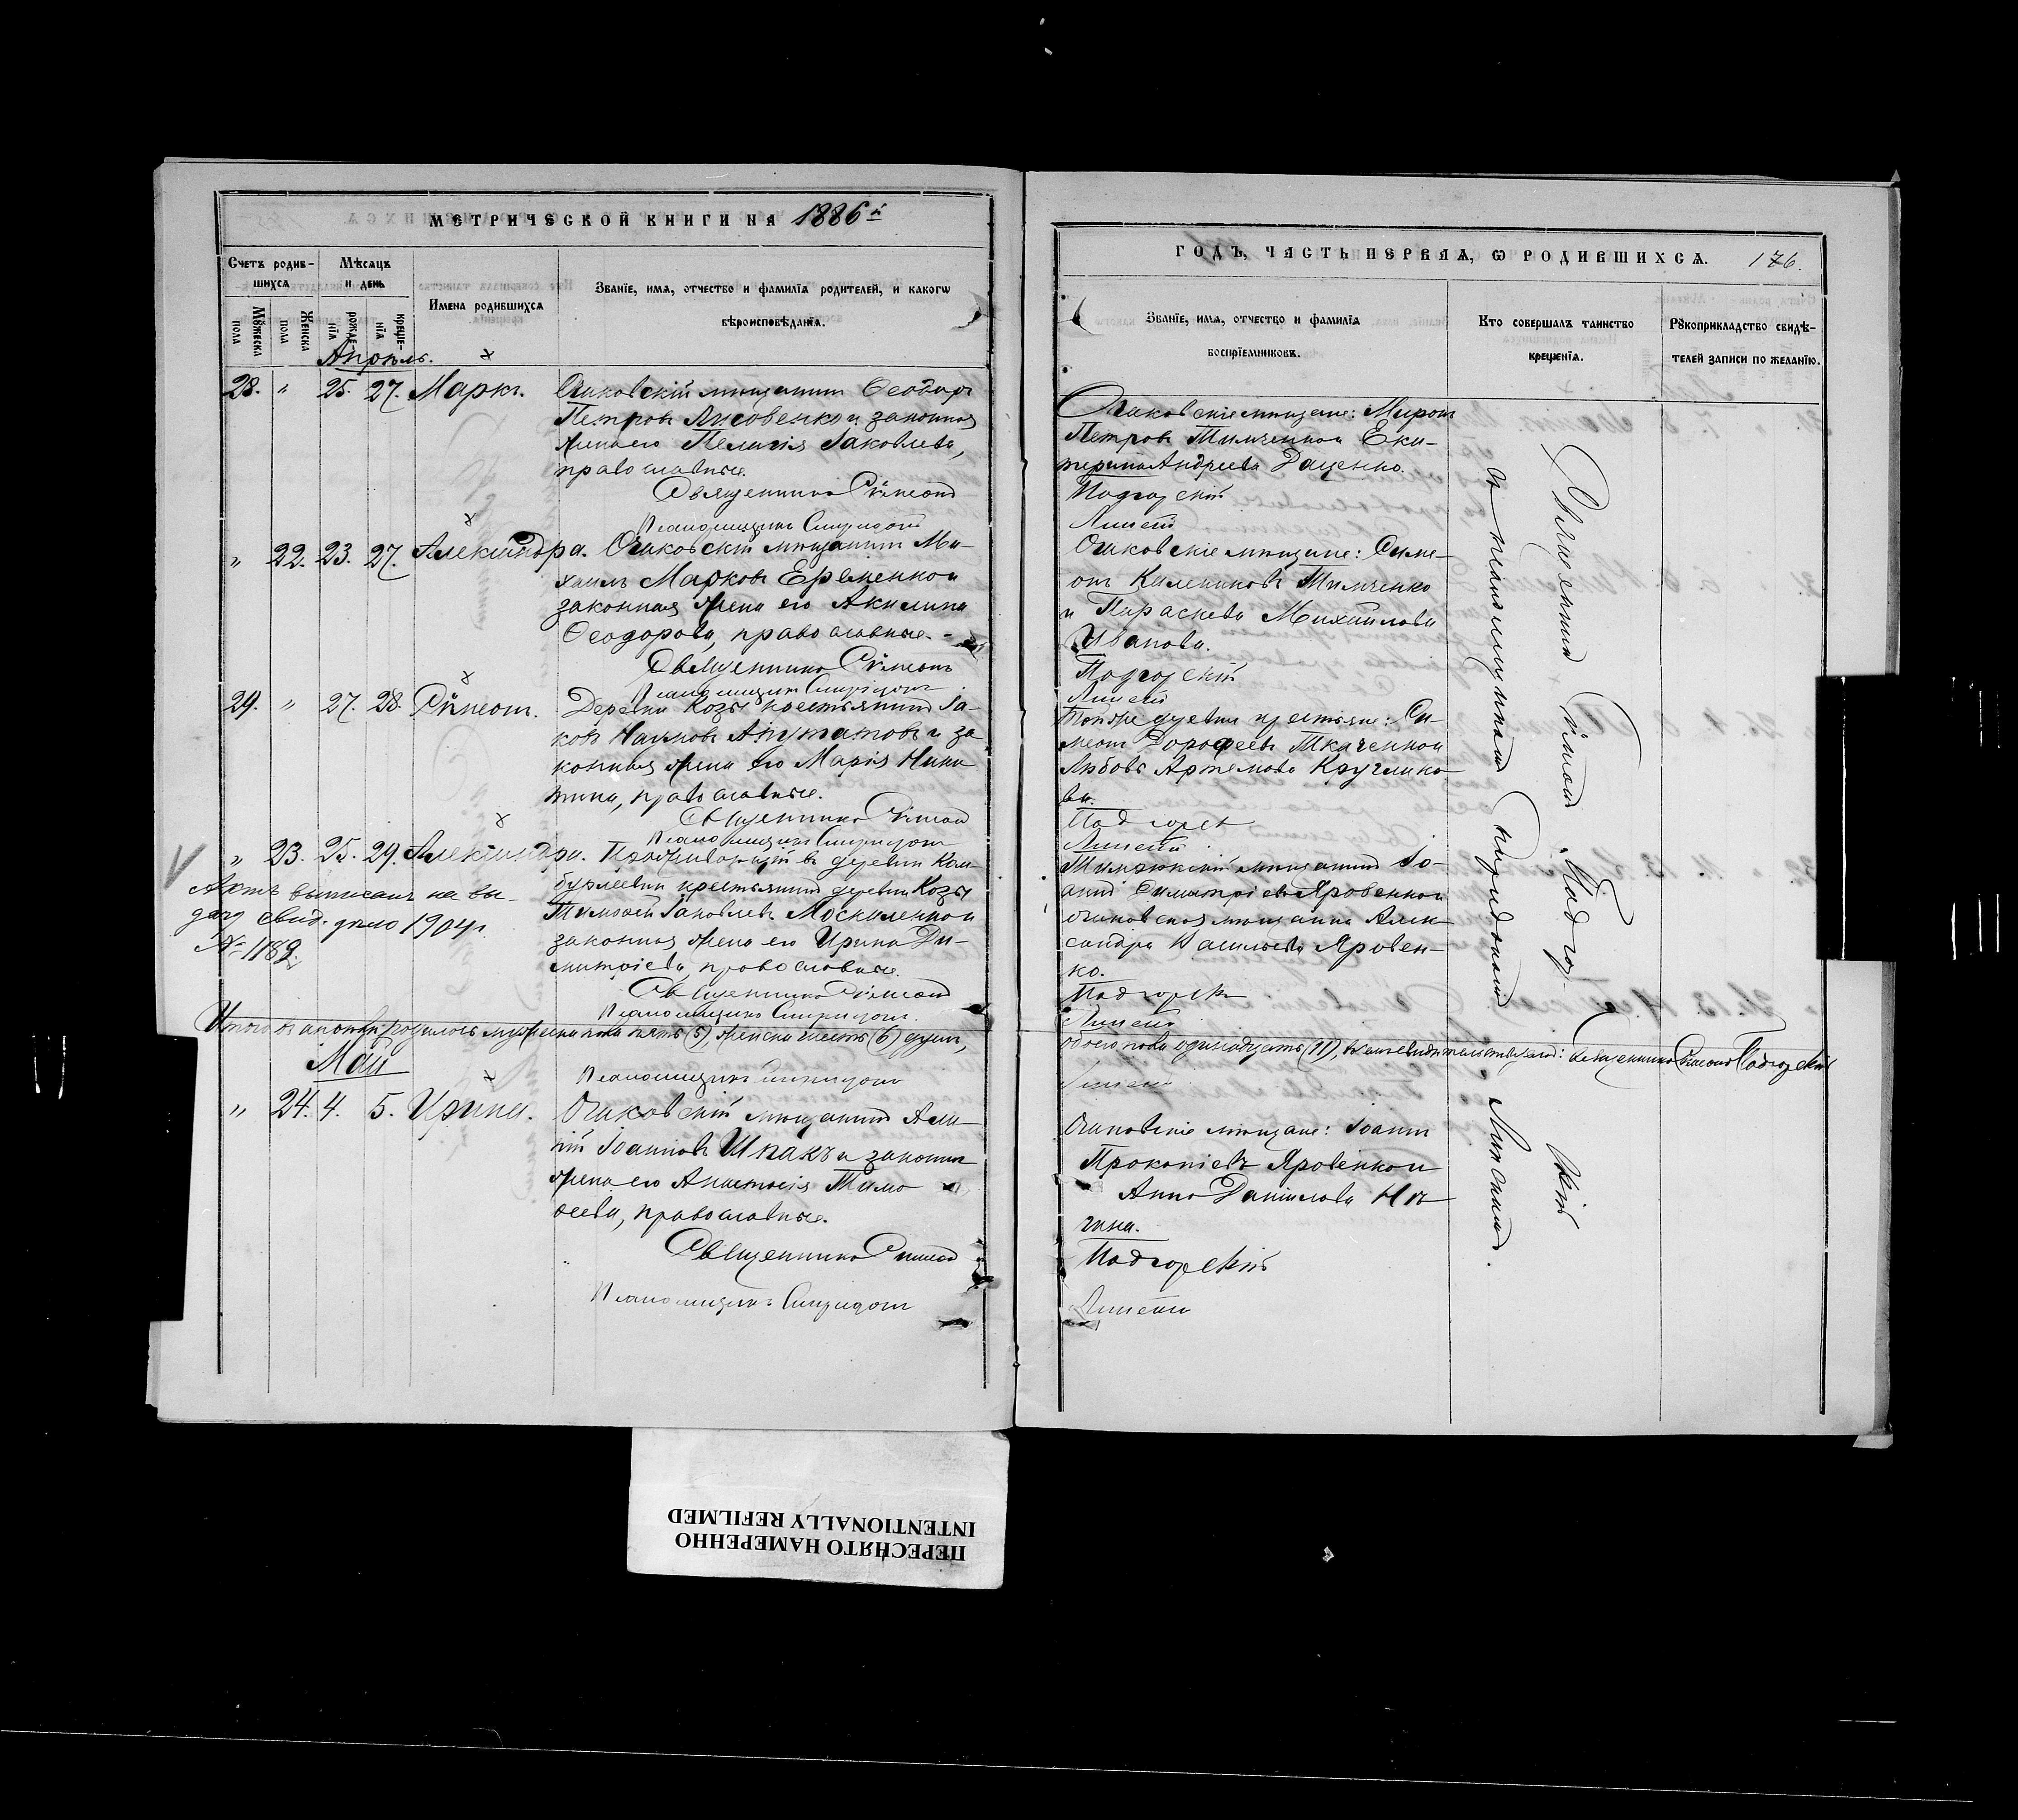 МЕТРИЧЕСКОЙ КНИГИ НА 1886й
Счетъ родив-
шихся
Мѣсяцъ
и день
Мꙋжеска
пола
Женска
пола
рожде-
нія
креще-
нія
Имена родившихся
Званіе, имя, отчество и фамилія родителей, и какогѡ
вѣроисповѣданія.
Апрѣль.
28. " 25. 27. Маркъ. Очаковскій мѣщанинъ Ѳеодоръ
Петровъ Лисовенко и законная
жена его Пелагія Іаковлева,
православные.
Священникъ Сѵмеонъ
Псаломщикъ Спиридонъ
" 22. 23. 27. Александра. Очаковскій мѣщанинъ Ми-
хаилъ Марковъ Еременко и
законная жена его Акилина
Ѳеодорова, православные.
Священникъ Сѵмеонъ
Псаломщикъ Спиридонъ
29. " 27. 28. Сѵмеонъ. Деревни Козы крестьянинъ Іа-
ковъ Наумовъ и за-
конная жена его Марія Ники-
тина, православные.
Священникъ Сѵмеонъ
Псаломщикъ Спиридонъ
" 23. 25. 29. Александра. Проживающій въ деревни Кам-
бурлеевки крестьянинъ деревни Козы
Тимоѳей Іаковлевъ Москаленко и
законная жена его Ирина Ди-
митріева, православные.
Священникъ Сѵмеонъ
Псаломщикъ Спиридонъ
Актъ выписанъ на вы-
дачу свид. дѣло 1904 г.
№ 1189.
Итого въ апрѣлѣ родилось мужеска пола пять (5), женска шесть (6) душъ,
Май
Псаломщикъ Спиридонъ
" 24. 4. 5. Ирина. Очаковскій мѣщанинъ Али-
пій Іоанновъ Шпакъ и законная
жена его Анастасія Тимо-
ѳеева, православные.
Священникъ Сѵмеонъ
Псаломщикъ Спиридонъ
ГОДЪ, ЧАСТЬ ПЕРВАЯ, Ѡ РОДИВШИХСЯ. 176.
Званіе, имя, отчество и фамилія
воспріемниковъ.
Кто совершалъ таинство
крещенія.
Рꙋкоприкладство свидѣ-
телей записи по желанію.
Очаковскіе мѣщане: Миронъ
Петровъ Тимченко и Ека-
терина Андреева Даценко.
Подгорскій
Очаковскіе мѣщане: Симе-
онъ Калениковъ Тимченко
и Параскева Михайлова
Иванова.
Подгорскій
Той же деревни крестьяне: Си-
меонъ Дороѳеевъ Ткаченко и
Любовь Артемова Круглико-
ва.
Подгорск
мѣщанинъ Іо-
аннъ Димитріевъ Яровенко и
очаковская мѣщанка Алек-
сандра Васильева Яровен-
ко.
Подгорск
обоего пола одинадцать (11), въ чемъ свидѣтельствуемъ: Священникъ Сѵмеонъ Подгорскій
Очаковскіе мѣщане: Іоаннъ
Прокопіевъ Яровенко и
Анна Даниилова
Подгорскій
Священникъ Сѵмеонъ Подгорскій
съ псаломщикомъ Спиридономъ
ПЕРЕСНЯТО НАМЕРЕННО
INTENTIONALLY REFILMED